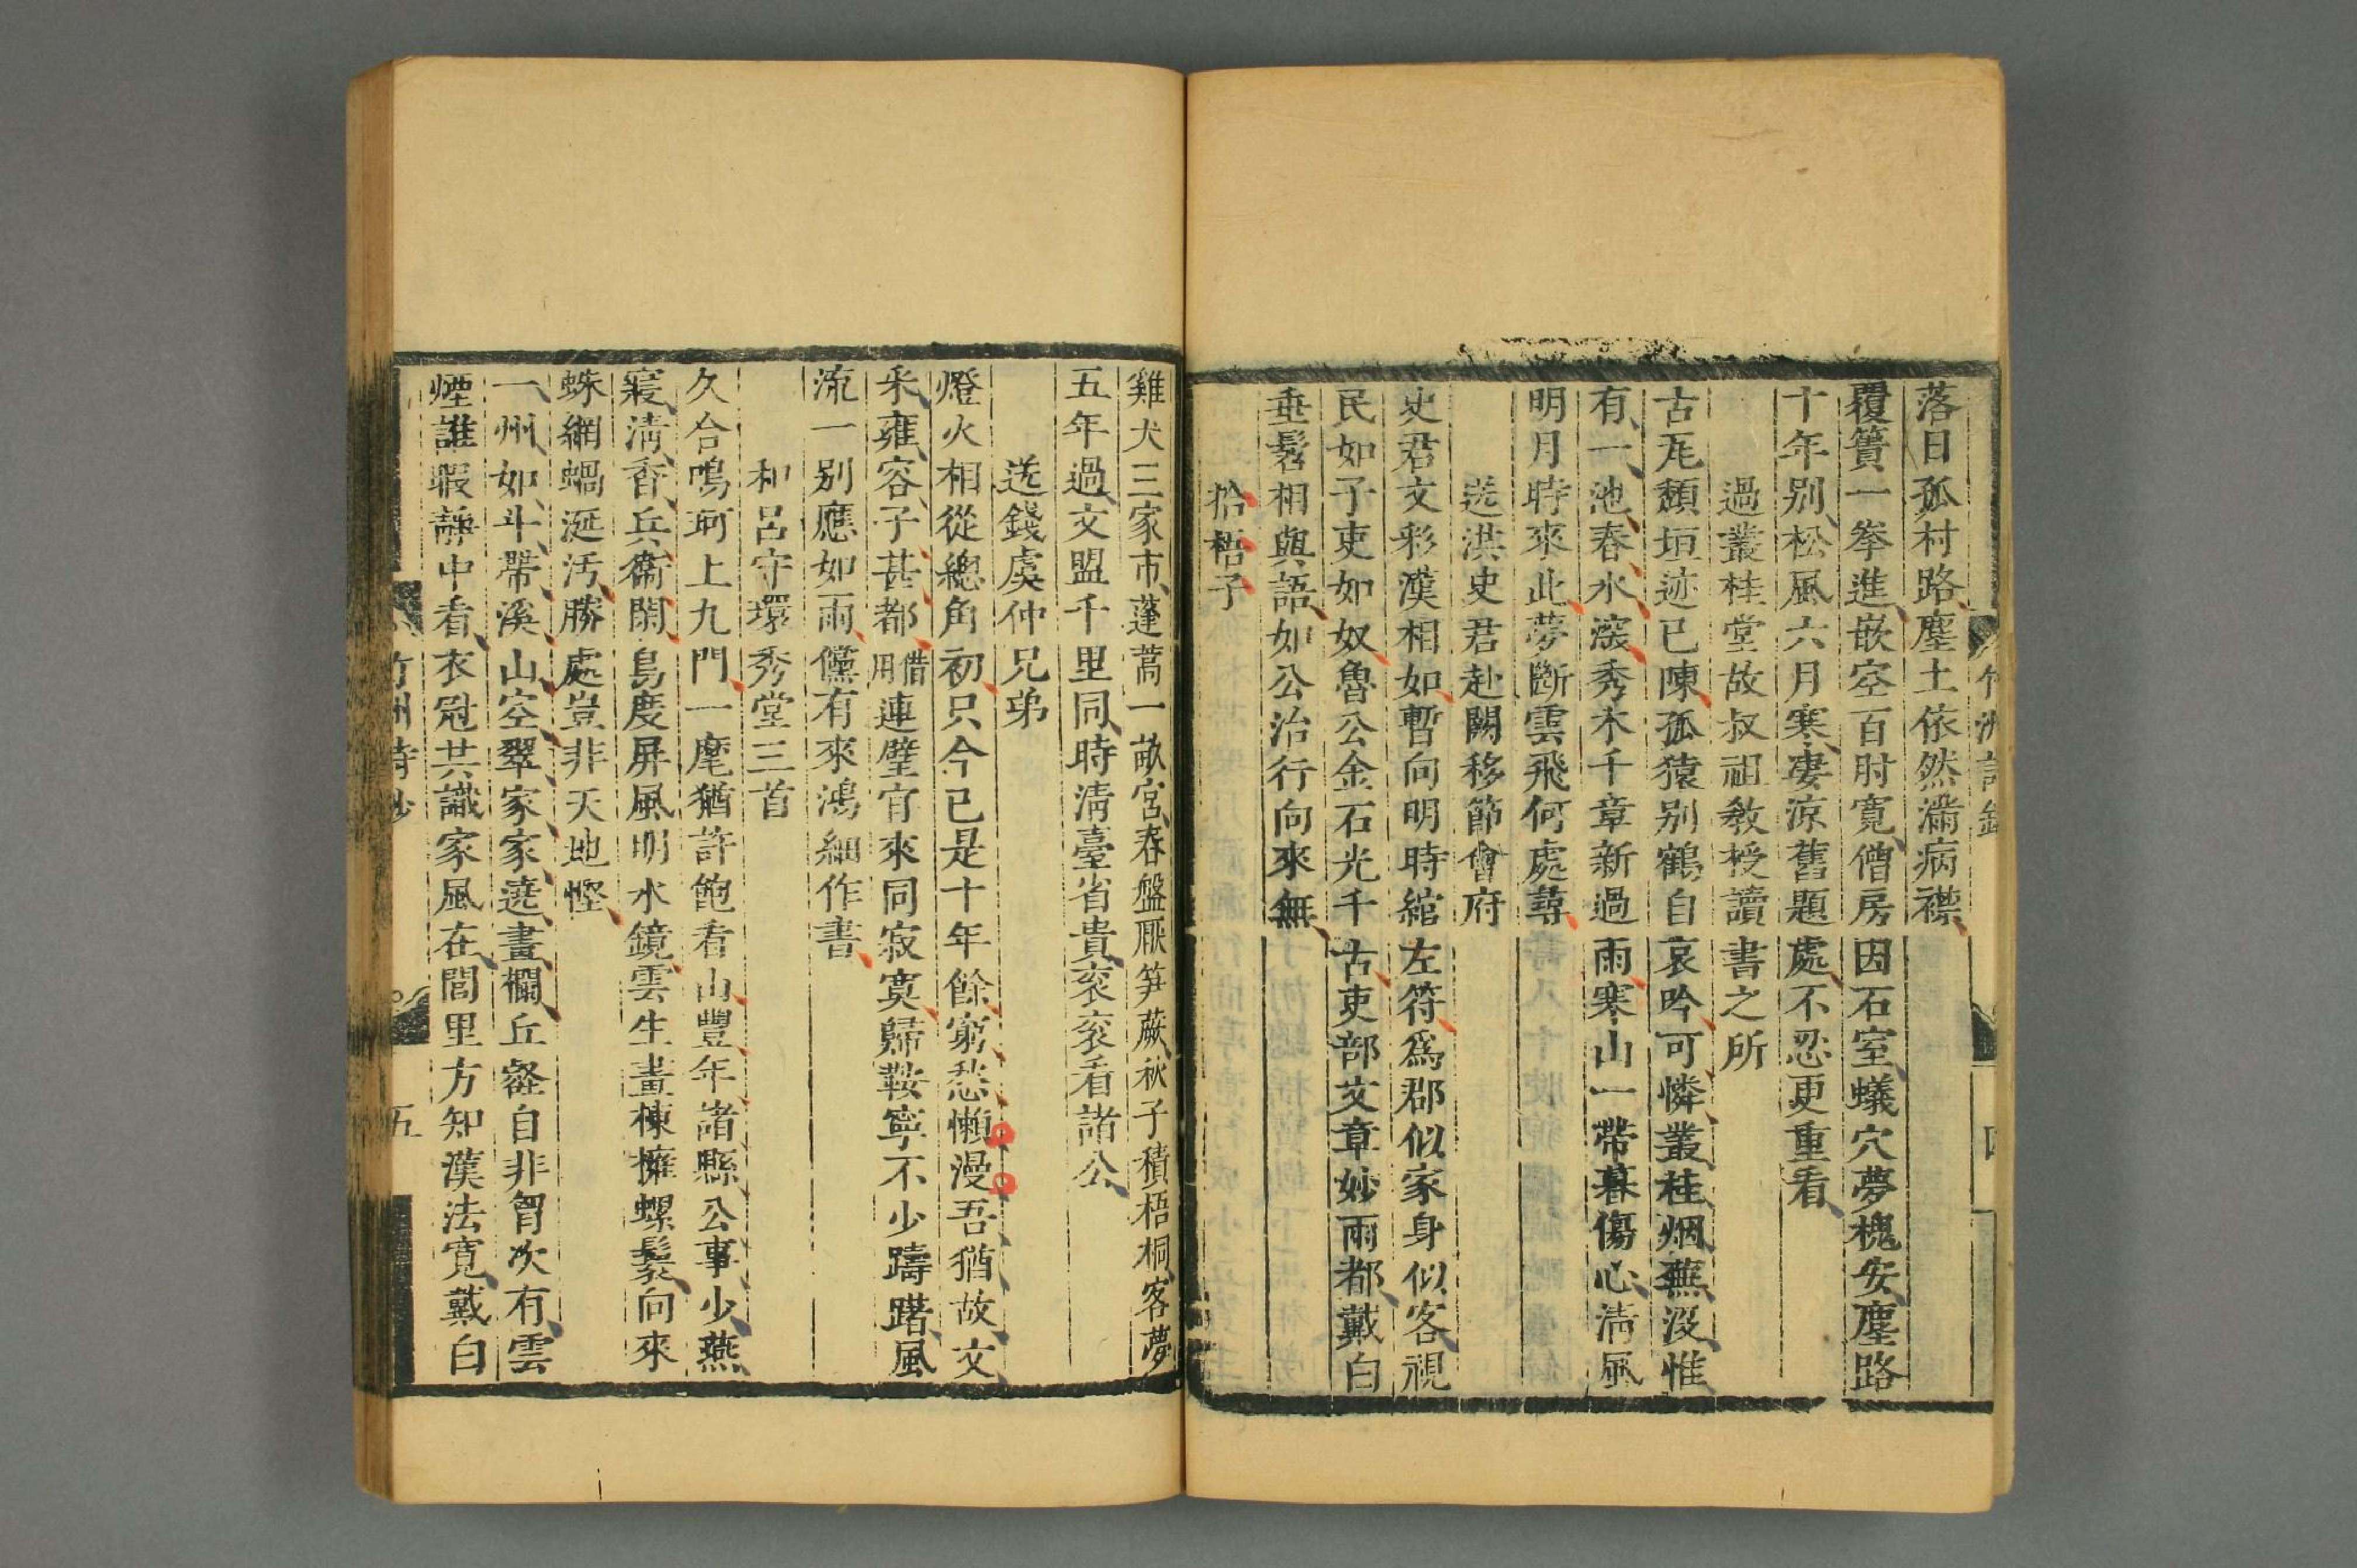 落日孤村路塵土依然滿病襟
覆簣一拳進嵌空百肘寬僧房因石室蟻穴夢槐安塵路
十年別松風六月寒淒涼舊題處不忍更重看
過叢桂堂故叔祖敎授讀書之所
古瓦頹垣迹已陳孤猿別鶴自哀吟可憐叢桂烟蕪沒惟
有一池春水深秀木千章新過雨寒山一帶暮傷心清風
明月時來此夢斷雲飛何處尋
送洪史君赴闕移節會府
史君文彩漢相如暫向明時綰左符爲郡似家身似客視
民如子吏如奴魯公金石光千古吏部文章妙兩都戴白
垂髫相與語如公治行向來無
拾梧子
四
雞犬三家市蓬蒿一畝宮春盤厭笋蕨秋子積梧桐客夢
五年過文盟千里同時清臺省貴衮衮看諸公
送錢虞仲兄弟
燈火相從總角初只今已是十年餘窮愁懶漫吾猶故文
采雍容子甚都借用連璧宦來同寂寞歸鞍寧不少躊躇風
流一別應如雨儻有來鴻細作書
和呂守環秀堂三首
久合鳴珂上九門一麾猶許飽看山豐年諸縣公事少燕
寢清香兵衞閑鳥度屏風明水鏡雲生畫棟擁螺鬟向來
蛛網蝸涎汚勝處豈非天地慳
一州如斗帶溪山空翠家家遶畫欄丘壑自非胷次有雲
煙誰暇靜中看衣冠共識家風在閭里方知漢法寬戴白
竹洲詩鈔
五